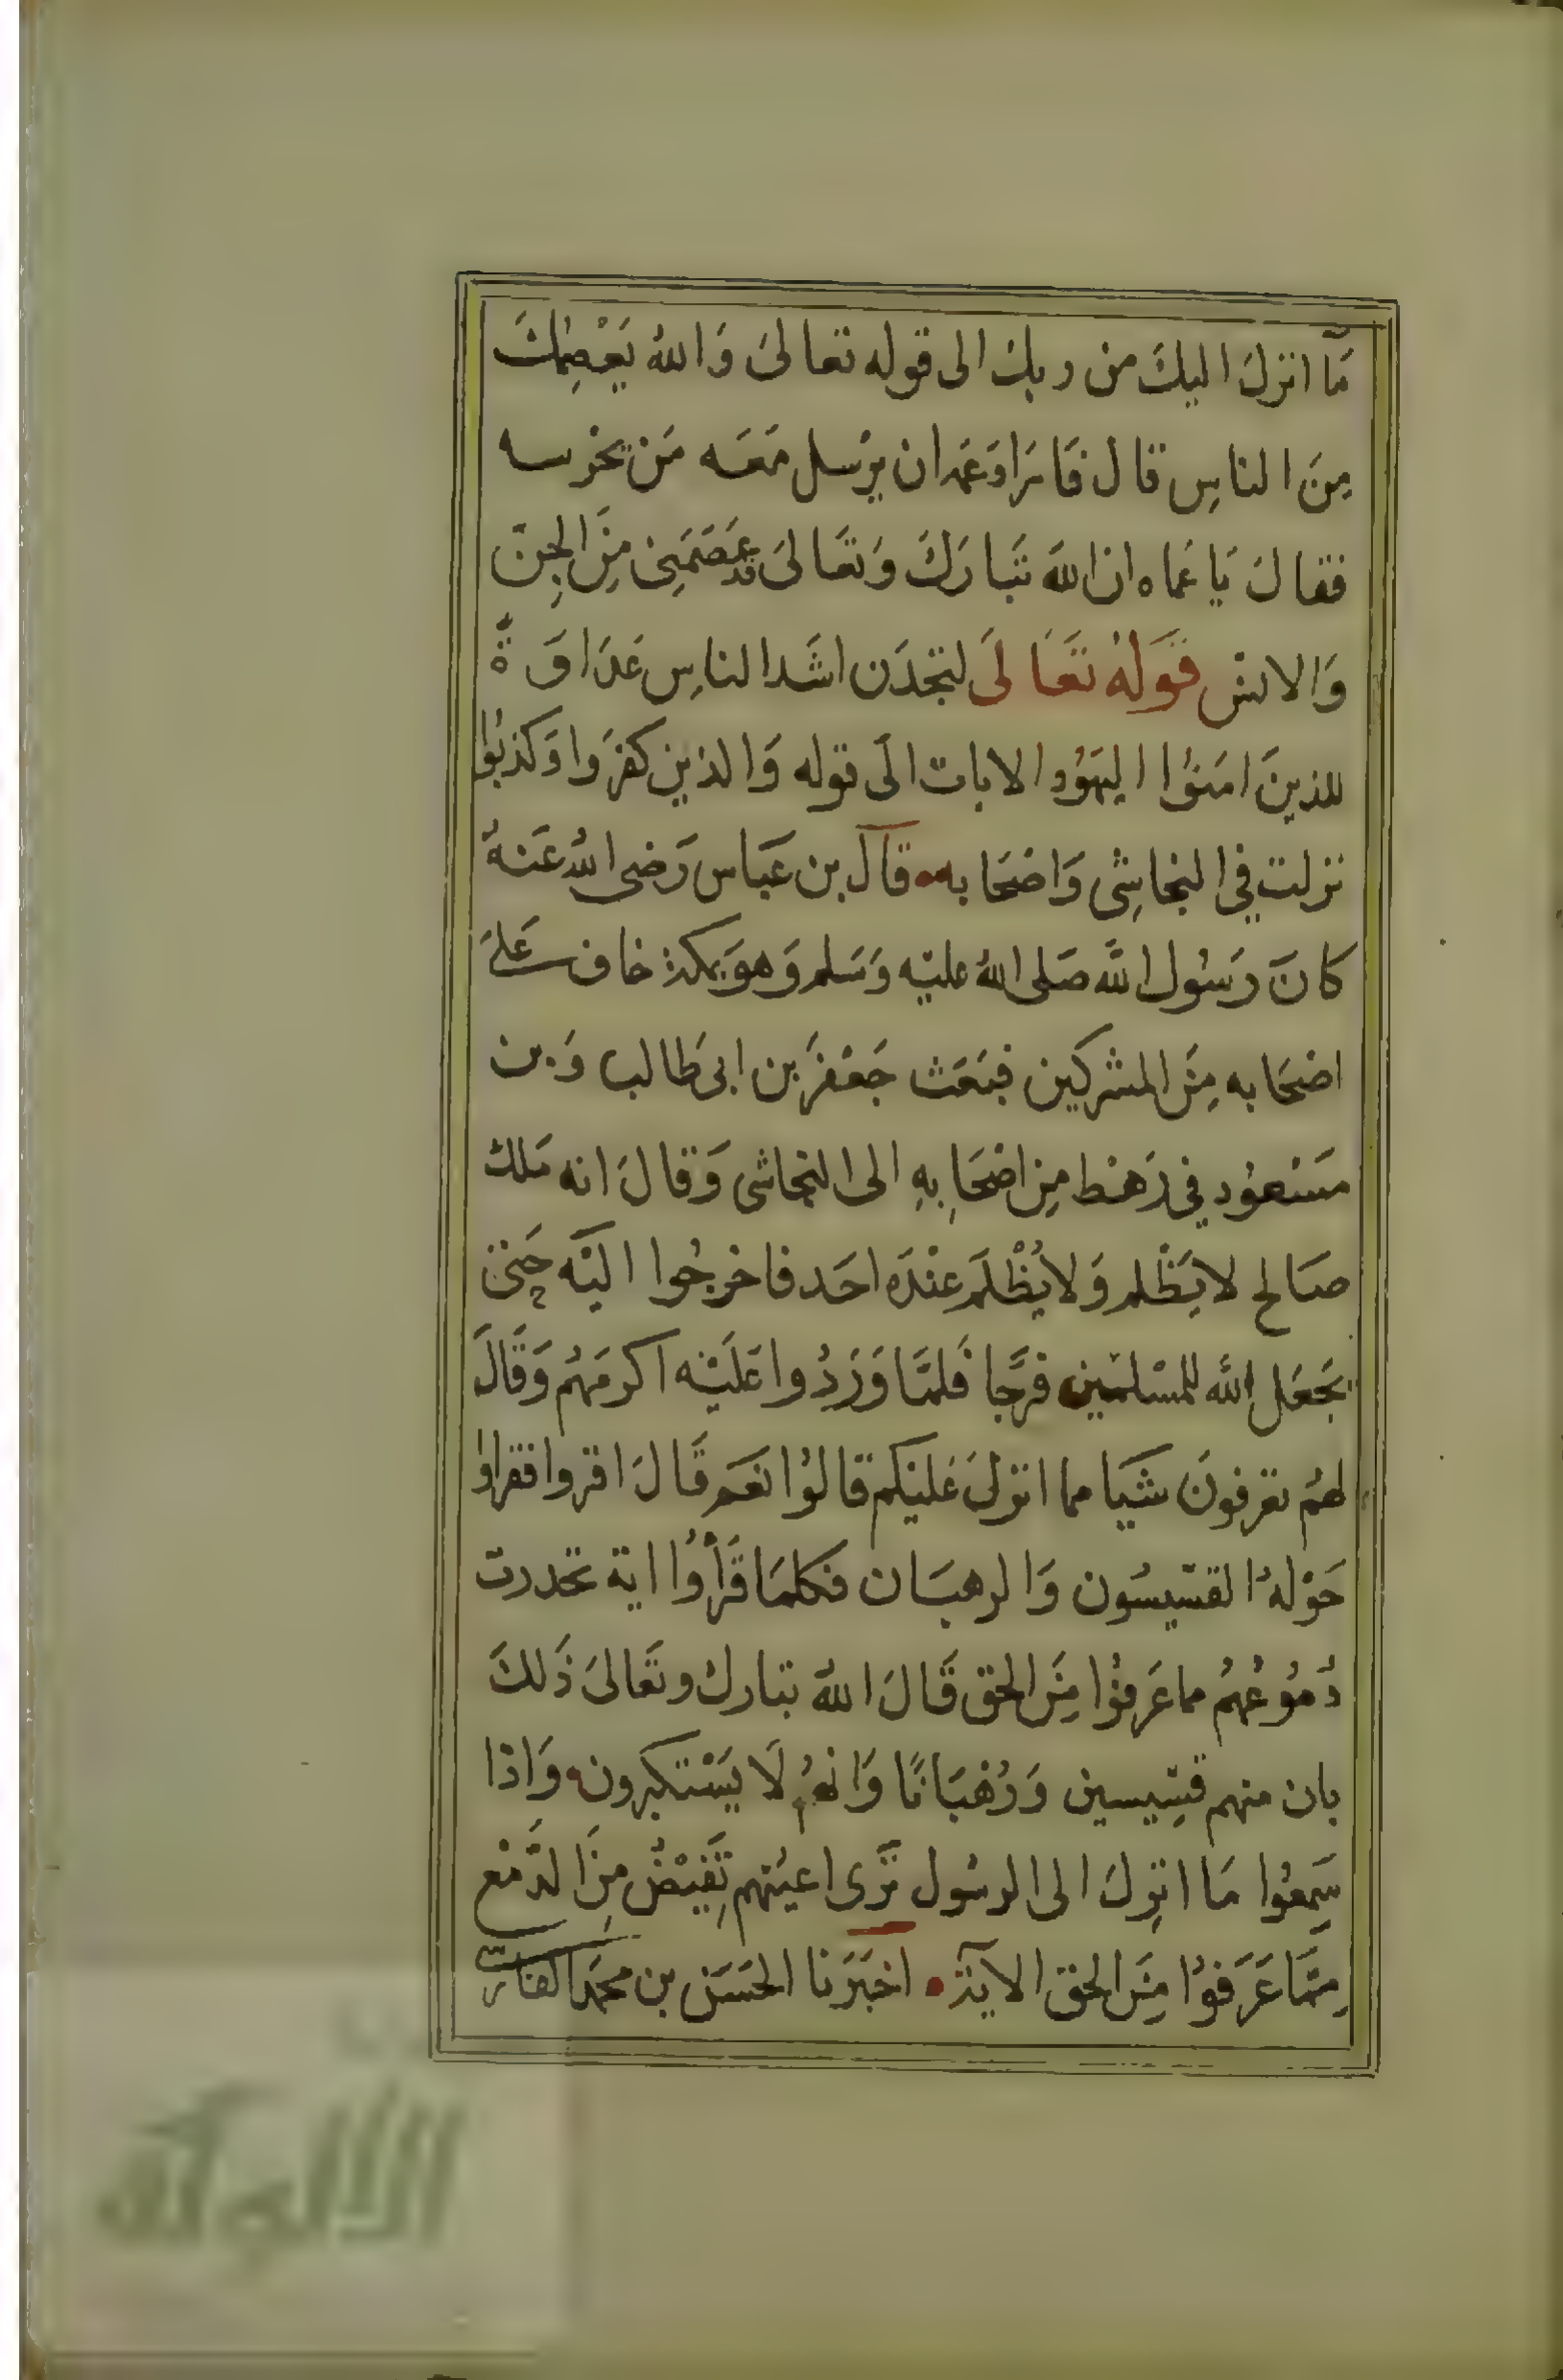 مَّا انزلَ اليكَ من ربكَ الى قوله تعالىَ وَاللهُ يَعْصِمُكَ
مِنَ الناسِ قال فَارَادَ عَمه ان يرْسل مَعَه مَن يحْرسه
فقالَ يَا عَماه ان اللهَ تَبَارَكَ وَتَعَالىَ قد عَصَمَنِى مِنَ الجِنِّ
وَالانسْ قَولهُ تَعَالَى لتجدَن اشَد الناسِ عَدَاوَةً
للذينَ امَنوُا اليَهوُد الايات الَى قوله وَالذين كفرَوا وَكذبوُا
نزلت فى النجاشِى وَاصْحَابه قال بن عَباس رَضى اللهُ عَنهُ
كانَ رَسُول اللهِ صَلى اللهُ عليْه وَسَلم وَهوَ بمكة خاف عَلَى
اصْحَابه مِنَ المشركين فبَعَث جَعْفرَ بن ابى طَالب وَبن
مَسْعوُد فى رَهْط مِن اصْحَابِهِ الى النجاشى وَقالَ انه مَلك
صَالح لا يَظْلم وَلا يُظْلَم عنْدَه احَد فاخرجُوا اليْه حَتىَّ
يجَعَل الله للمسْلمَين فرَجًا فَلمَّا وَرَدُوا عَلَيْه اكرمَهُم وَقَالَ
لهمُ تعرفونَ شيَا مما انزلَ عَليْكم قالوُا نعَم قَالَ اقروا فقراوا
حَوْلهُ القسّيسُون وَالرهبَان فكلمَا قَرَأُوا اية تحَدرت
دُمُوُعُهمُ مما عَرفوُا مِنَ الحق قَالَ اللهُ تبارك وتَعَالىَ ذَلكَ
بان منهم قسِّيسين وَرُهْبَانًا وَانهمُ لَا يَسْتكبرونَ وَاذا
سَمِعوُا مَا انزِلَ الى الرسُول تَرى اعينُهم تَفِيْضُ مِنَ الدَّمْعِ
مِمَّا عَرَفوُا مِنَ الحق الاَية اخبَرَنا الحَسَن بن محَمد الفارسى
الألوكة